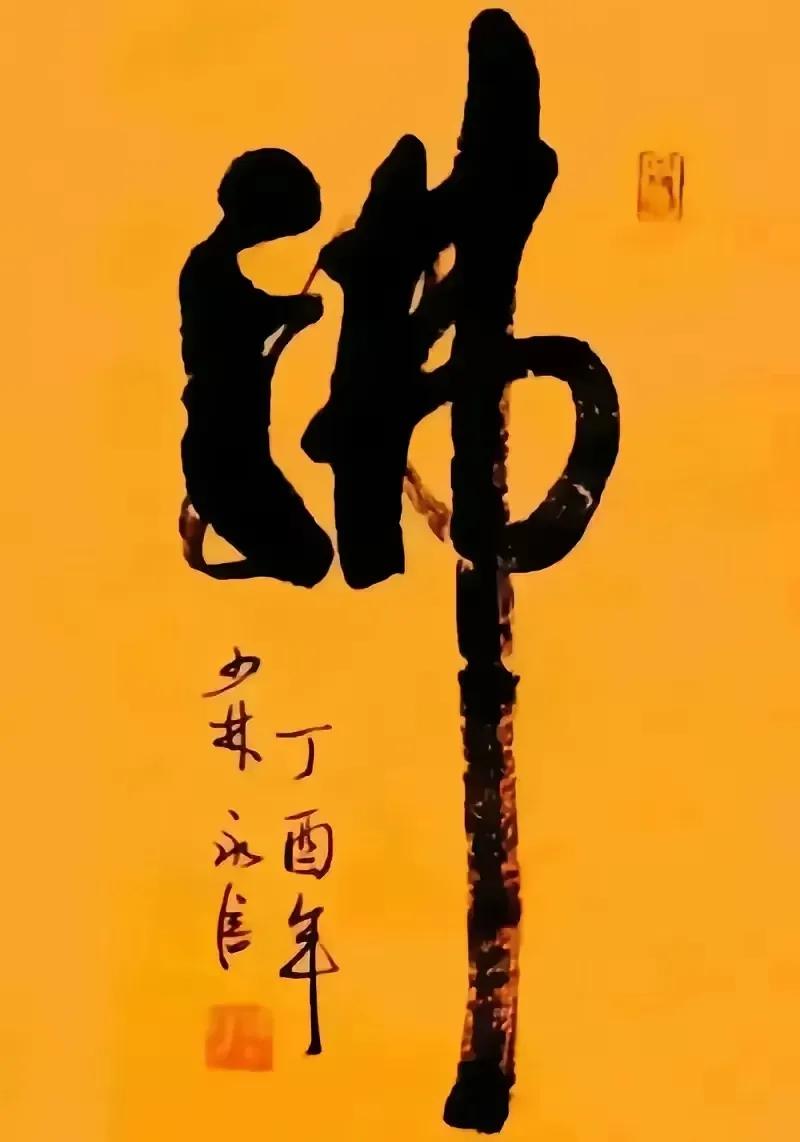 佛
丁酉年
少林永信